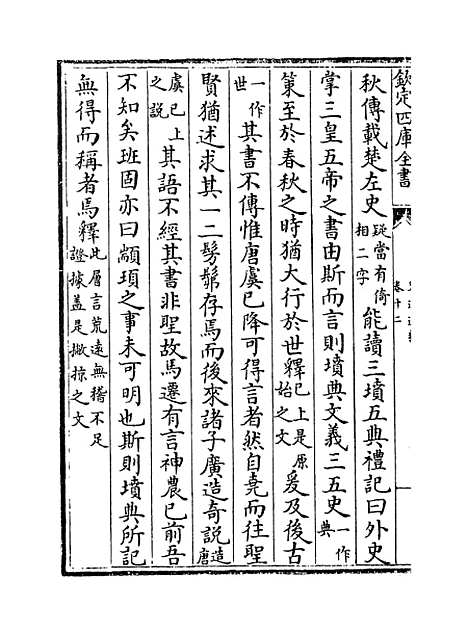 欽定四庫全書
卷十二
秋傳載楚左史疑當有倚相二字能讀三墳五典禮記曰外史
掌三皇五帝之書由斯而言則墳典文義三五史一作典
策至於春秋之時猶大行於世釋已上是原始之文爰及後古
一作世其書不傳惟唐虞已降可得言者然自堯而往聖
賢猶述求其一二髣髴存焉而後來諸子廣造奇說造唐
虞已上之說其語不經其書非聖故馬遷有言神農已前吾
不知矣班固亦曰顓頊之事未可明也斯則墳典所記
無得而稱者焉釋此層言荒遠無稽不足證據蓋是撇掠之文